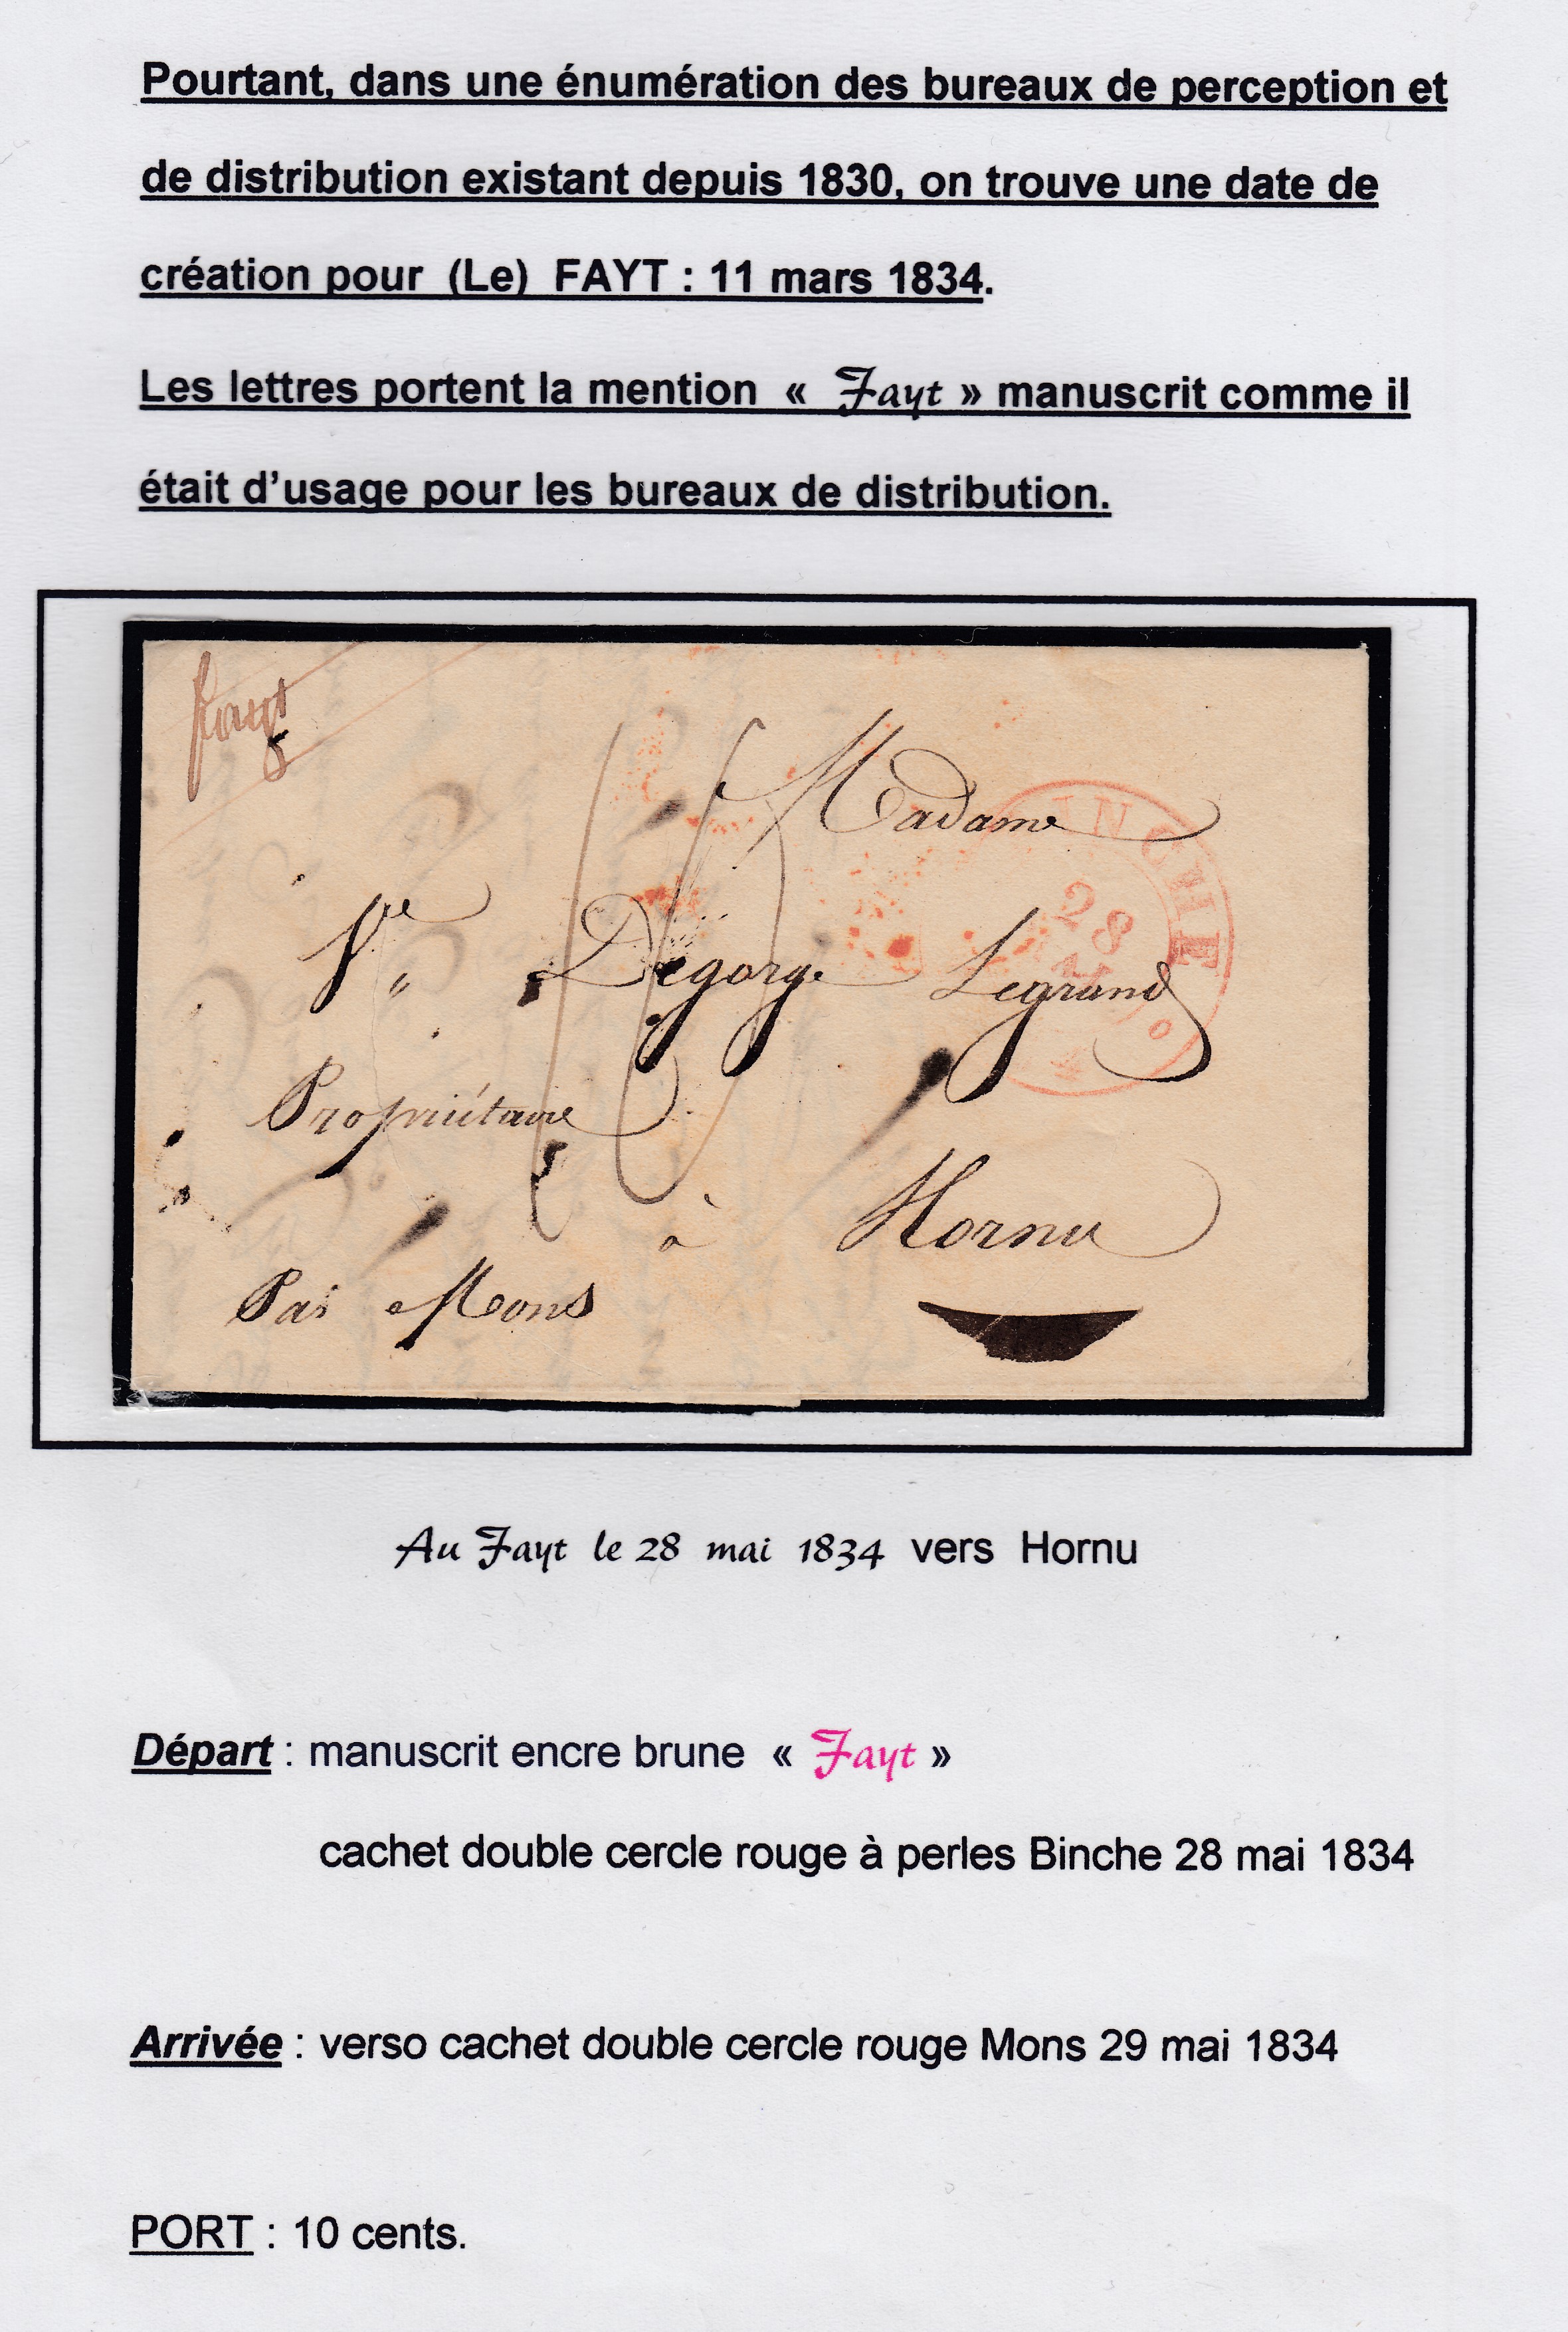 Pourtant, dans une énumération des bureaux de perception et
de distribution existant depuis 1830, on trouve une date de
création pour (Le) FAYT : 11 mars 1834.
Les lettres portent la mention « Fayt » manuscrit comme il
était d'usage pour les bureaux de distribution.
fayt
Madame
Ve Degorge Legrand
Propriétaire
à Hornu
Par Mons
BINCHE
28
Au Fayt le 28 mai 1834 vers Hornu
Départ : manuscrit encre brune « Fayt »
cachet double cercle rouge à perles Binche 28 mai 1834
Arrivée : verso cachet double cercle rouge Mons 29 mai 1834
PORT : 10 cents.